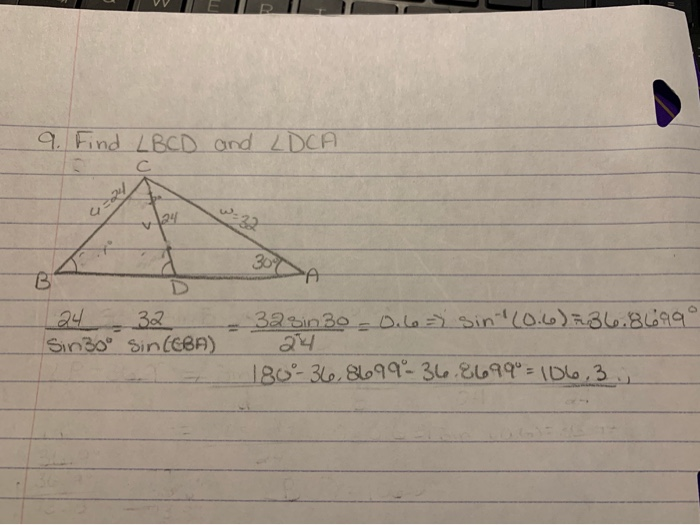 9. Find ∠BCD and ∠DCA
C
u=24
v 24
w=32
30°
B
D
A
24/sin30° = 32/sin(CBA) = 32sin30/24 = 0.6 => sin⁻¹(0.6) = 36.8699°
180° - 36.8699° - 36.8699° = 106.3